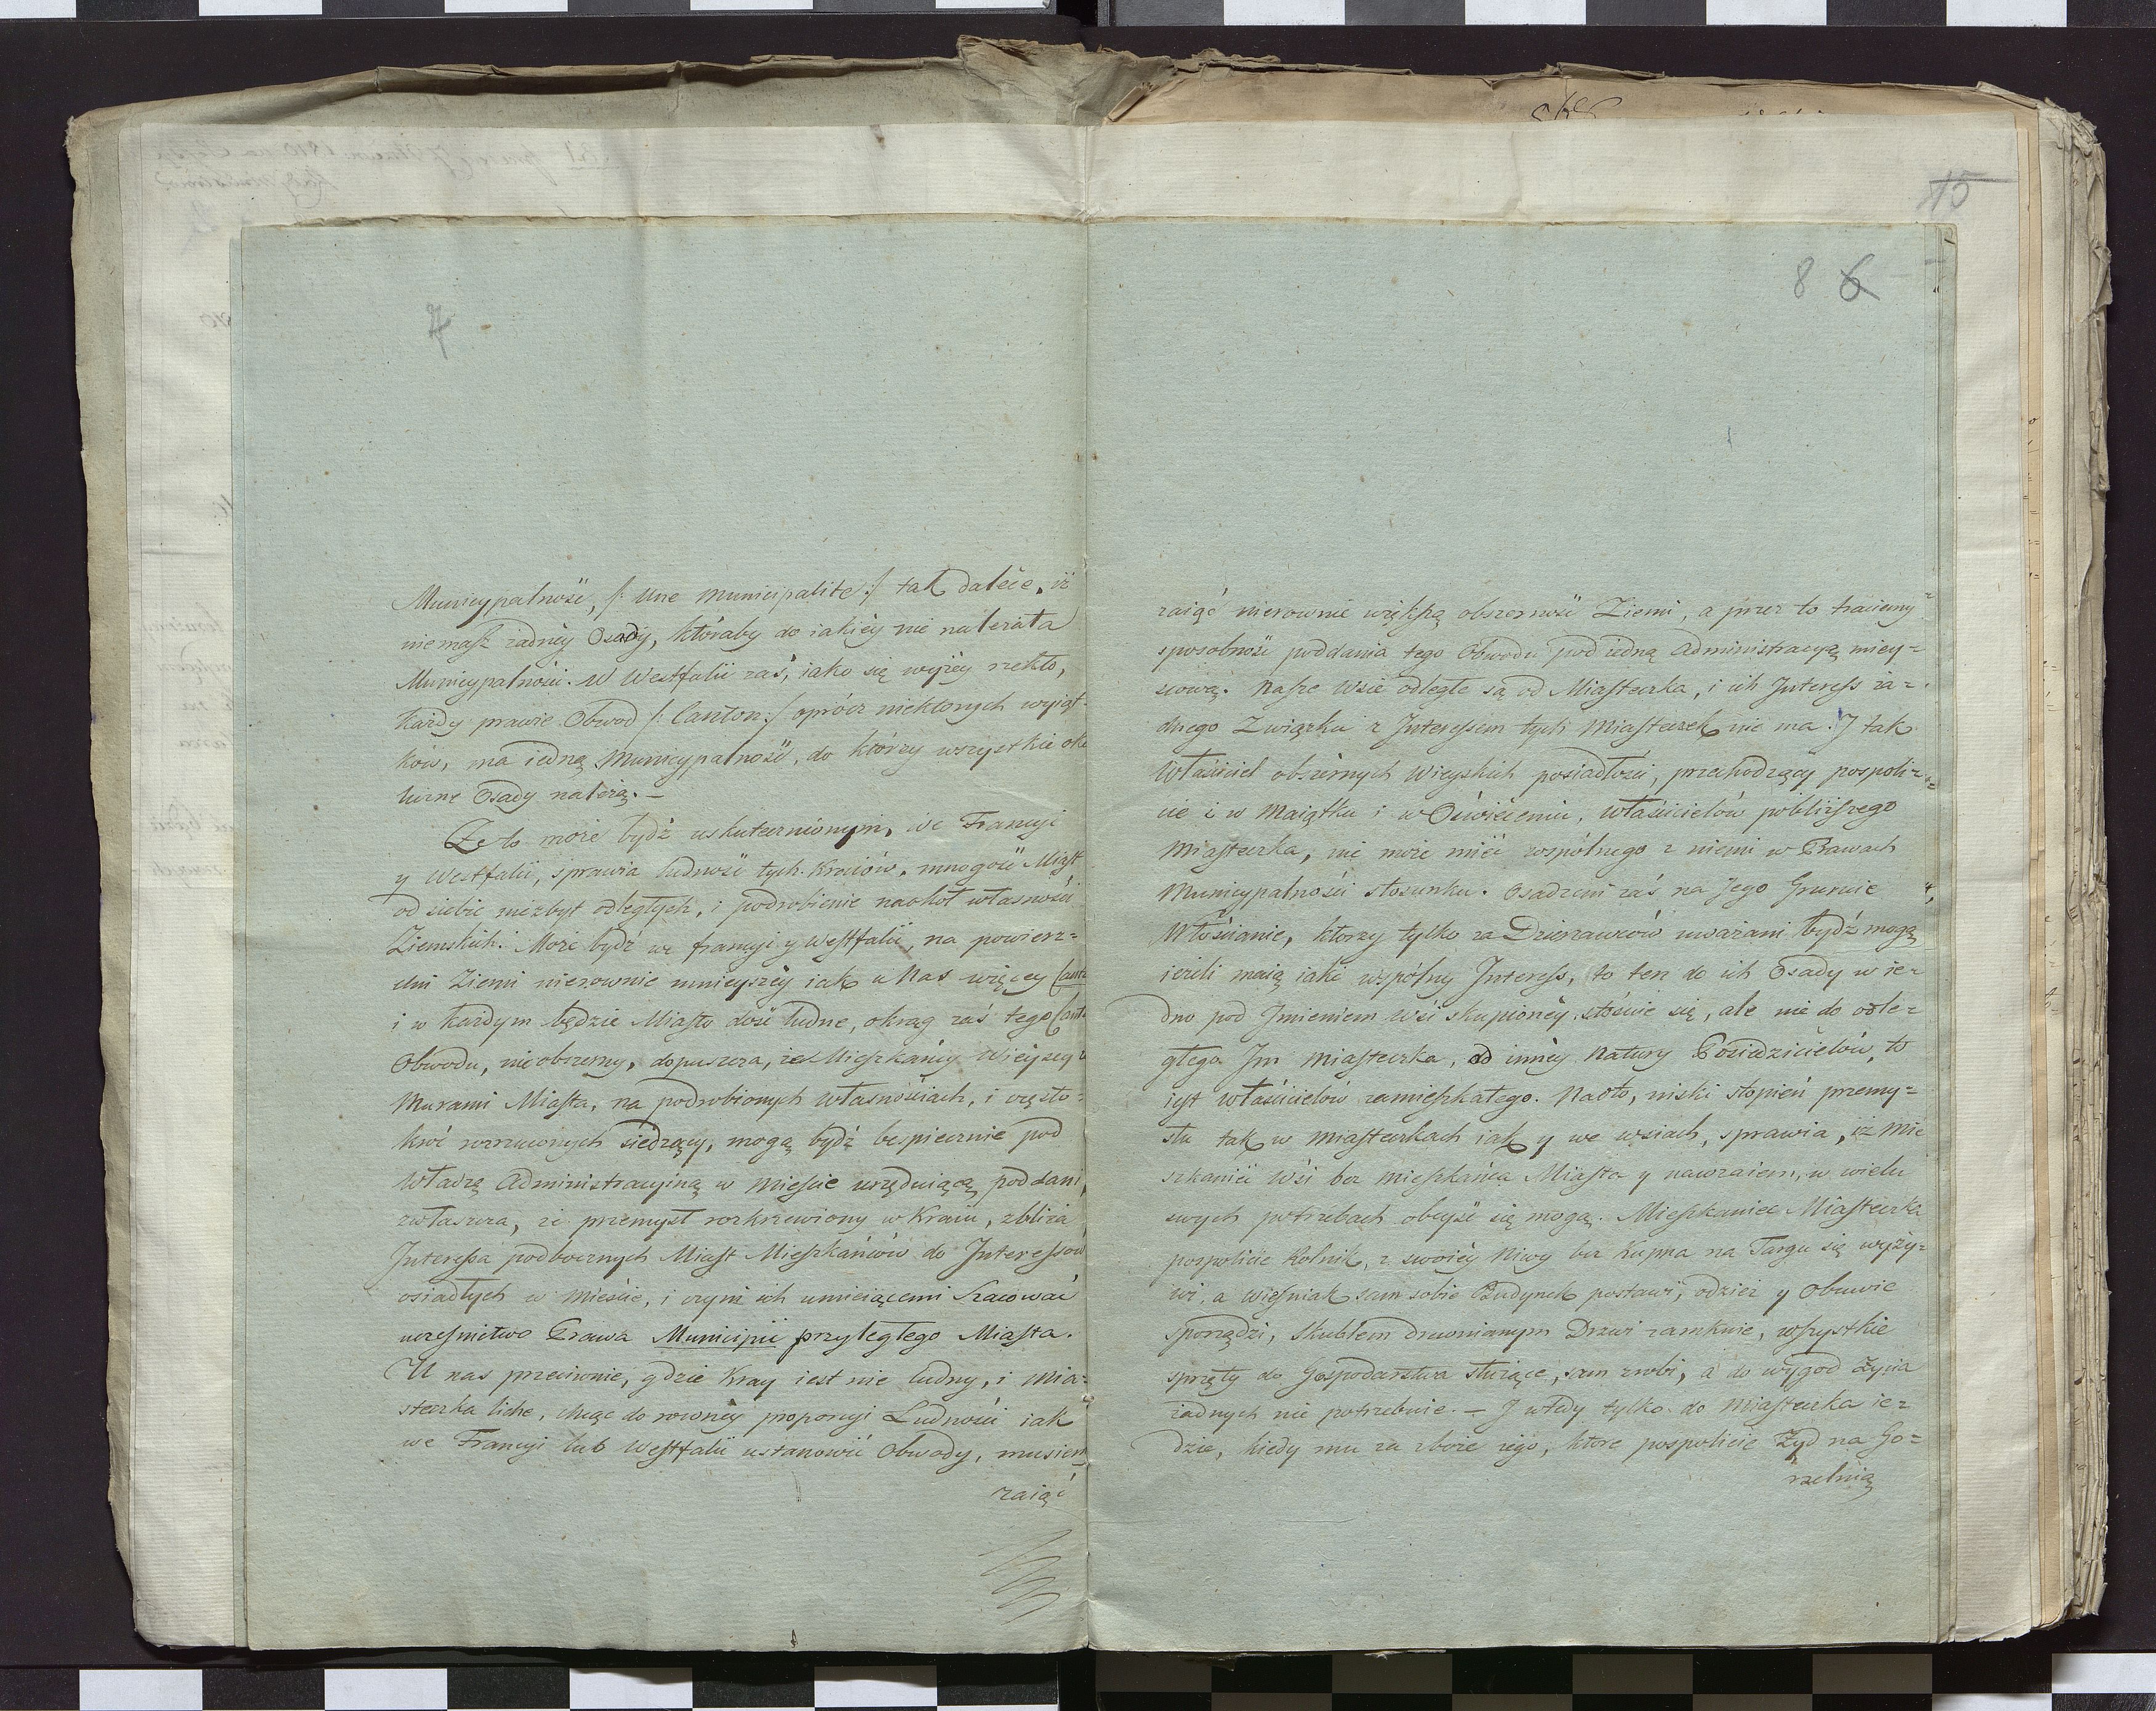 15
8 6
7
Municypalność, /: Une municipalité :/ tak dalece, iż
niemasz żadnéy Osady, któraby do iakiéy nie należała
Municypalności. W Westfalii zaś, iako się wyżéy rzekło,
każdy prawie Obwod /: Canton :/ oprócz niektorych wyiąt-
ków, ma iedną Municypalność, do któréy wszystkie oko
liczne Osady należą. —
Że to może bydź uskutecznionym, we Francyi
y Westfalii, sprawia ludność tych Kraiów, mnogość Miast
od siebie niezbyt odległych, i podrobienie naokoł własności
Ziemskich. Może bydź we francyi y Westfalii, na powierz=
chni Ziemi nierownie mnieyszéy iak u Nas więcey
i w każdym będzie Miasto dość ludne, okrąg zaś tego
Obwodu, nieobszerny, dopuszcza, że Mieszkańcy
Murami Miasta, na podrobionych własnościach, i często=
kroć rozrzuconych siedzący, mogą bydź bespiecznie pod
Władzą Administracyiną w mieście urzęduiącą poddani,
zwłaszcza, że przemysł rozkrzewiony w Kraiu, zbliża
Interessa podbocznych Miast Mieszkańców do Interessow
osiadłych w Mieście, i czyni ich umieiącemi Szacować
uczesnictwo Prawa Municipii przyległego Miasta.
U nas przeciwnie, gdzie Kray iest nie ludny, i Mia=
steczka liche, chcąc do rowney proporcyi Ludności iak
we Francyi lub Westfalii ustanowić Obwody, musiem
zaiąć
zaiąć nierownie większą obszerność Ziemi, a przez to traciemy
sposobność poddania tego Obwodu pod iedną Administracyą miey=
scową. Nasze Wsie odległe są od Miasteczka, i ich Interess ża=
dnego Związku z Interessem tych Miasteczek nie ma. I tak
Właściciel obszernych Wieyskich posiadłości, przechodzący pospoli=
cie i w Maiątku i w Oświeceniu, właścicielów pobliższego
Miasteczka, nie może mieć wspólnego z niemi w Prawach
Municypalności stosunku. Osadzeni zaś na Jego Gruncie
Włościanie, ktorzy tylko za Dzierzawców uważani bydź mogą
ieżeli maią iaki wspólny Interess, to ten do ich Osady w ie=
dno pod Jmieniem wsi skupionéy, stosuie się, ale nie do odle=
głego Im Miasteczka, od innéy Natury Posiedzicielów, to
iest Właścicielów zamieszkałego. Nadto, niski stopień przemy=
słu tak w Miasteczkach iak y we wsiach, sprawia, iż Mie
szkaniec Wsi bez mieszkańca Miasta y nawzaiem, w wielu
swych potrzebach obeyść się mogą. Mieszkaniec Miasteczka
pospolicie Rolnik, z swoiéy Niwy bez Kupna na Targu się wyży=
wi, a wieśniak sam sobie Budynek postawi, odzież y Obuwie
sporządzi, Skublem drewnianym Drzwi zamknie, wszystkie
sprzęty do Gospodarstwa służące, sam zrobi, a do wygod Życia
żadnych nie potrzebuie. — I wtedy tylko do Miasteczka ie=
dzie, kiedy mu za zboże iego, ktore pospolicie Żyd na Go=
rzelnią